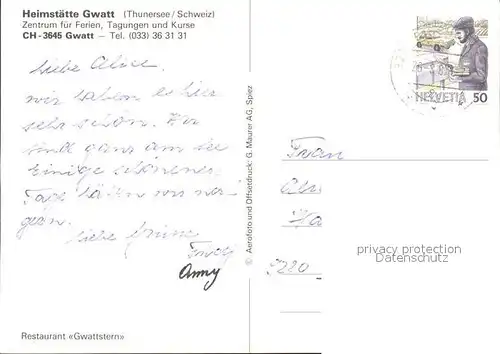 Heimstätte Gwatt (Thunersee/Schweiz)
Zentrum für Ferien, Tagungen und Kurse
CH-3645 Gwatt – Tel. (033) 36 31 31
HELVETIA 50
Liebe Alice.
wir haben es hier
sehr schön. Wir
sind ganz am See
Einige schönere
Tage hätten wir
gern.
Liebe Grüsse
Anny
© Aerofoto und Offsetdruck: G. Maurer AG, Spiez
Frau
privacy protection
Datenschutz
Restaurant «Gwattstern»